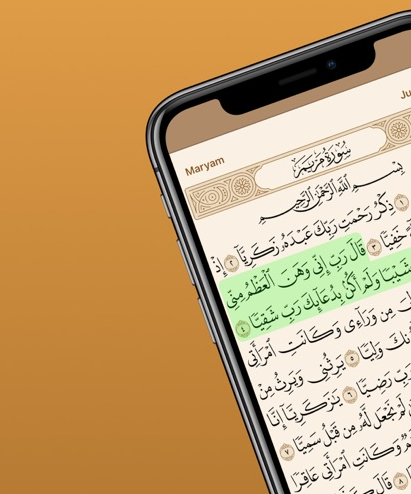 Maryam
Ju
سُورَةُ مَرْيَمَ
بِسْمِ اللَّهِ الرَّحْمَٰنِ الرَّحِيمِ
١ ذِكْرُ رَحْمَتِ رَبِّكَ عَبْدَهُۥ زَكَرِيَّآ ٢ إِذْ
خَفِيًّا ٣ قَالَ رَبِّ إِنِّى وَهَنَ ٱلْعَظْمُ مِنِّى
شَيْبًا وَلَمْ أَكُنۢ بِدُعَآئِكَ رَبِّ شَقِيًّا ٤
مِن وَرَآءِى وَكَانَتِ ٱمْرَأَتِى
وَلِيًّا ٥ يَرِثُنِى وَيَرِثُ مِنْ
رَبِّ رَضِيًّا ٦ يَٰزَكَرِيَّآ إِنَّا
لَمْ نَجْعَل لَّهُۥ مِن قَبْلُ سَمِيًّا ٧
وَكَانَتِ ٱمْرَأَتِى عَاقِرًا
٨ قَالَ